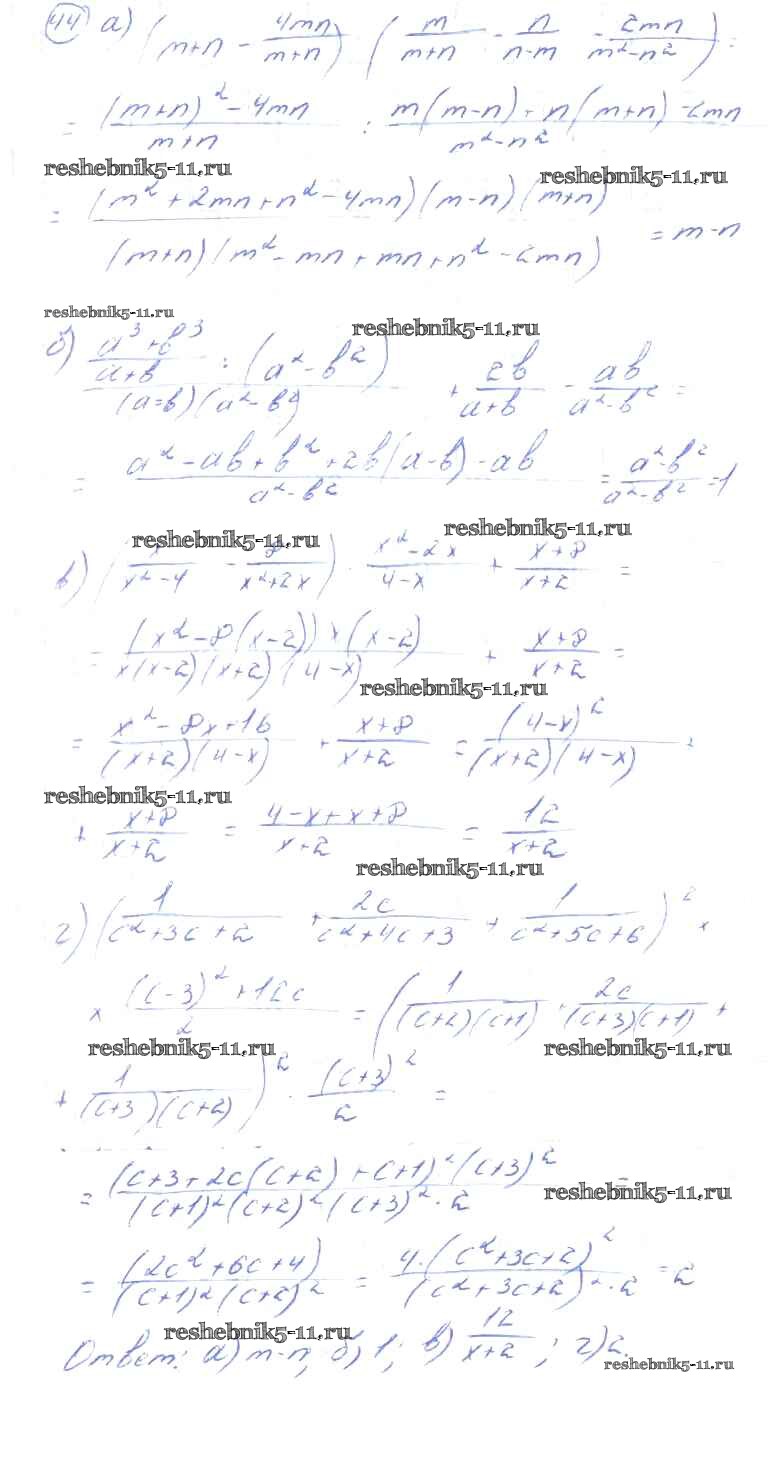 44 а) (m+n - 4mn/(m+n)) (m/(m+n) - n/(n-m) - 2mn/(m²-n²)) =
= ((m+n)² - 4mn)/(m+n) : (m(m-n) + n(m+n) - 2mn)/(m²-n²)
reshebnik5-11.ru reshebnik5-11.ru
= (m² + 2mn + n² - 4mn)(m-n)(m+n) / (m+n)(m² - mn + mn + n² - 2mn) = m-n
reshebnik5-11.ru
reshebnik5-11.ru
б) (a³+b³)/(a+b) : (a²-b²) / (a+b)(a²-b²) + 2b/(a+b) - ab/(a²-b²) =
= (a² - ab + b² + 2b(a-b) - ab)/(a²-b²) = (a²-b²)/(a²-b²) = 1
reshebnik5-11.ru reshebnik5-11.ru
в) (x/(x²-4) - 8/(x²+2x)) · (x²-2x)/(4-x) + (x+8)/(x+2) =
= (x² - 8(x-2)) x (x-2) / x(x-2)(x+2)(4-x) + (x+8)/(x+2) =
reshebnik5-11.ru
= (x² - 8x + 16)/((x+2)(4-x)) + (x+8)/(x+2) = (4-x)²/((x+2)(4-x)) +
reshebnik5-11.ru
+ (x+8)/(x+2) = (4-x+x+8)/(x+2) = 12/(x+2)
reshebnik5-11.ru
г) (1/(c²+3c+2) + 2c/(c²+4c+3) + 1/(c²+5c+6))² ×
× ((c-3)² + 12c)/2 = (1/((c+2)(c+1)) + 2c/((c+3)(c+1)) +
reshebnik5-11.ru reshebnik5-11.ru
+ 1/((c+3)(c+2)))² · (c+3)²/2 =
= (c+3+2c(c+2)+c+1)² (c+3)² / (c+1)²(c+2)²(c+3)² · 2 =
reshebnik5-11.ru
= (2c²+6c+4)/((c+1)²(c+2)²) = 4·(c²+3c+2)²/((c²+3c+2)²·2) = 2
reshebnik5-11.ru
Ответ: а) m-n; б) 1; в) 12/(x+2); г) 2.
reshebnik5-11.ru